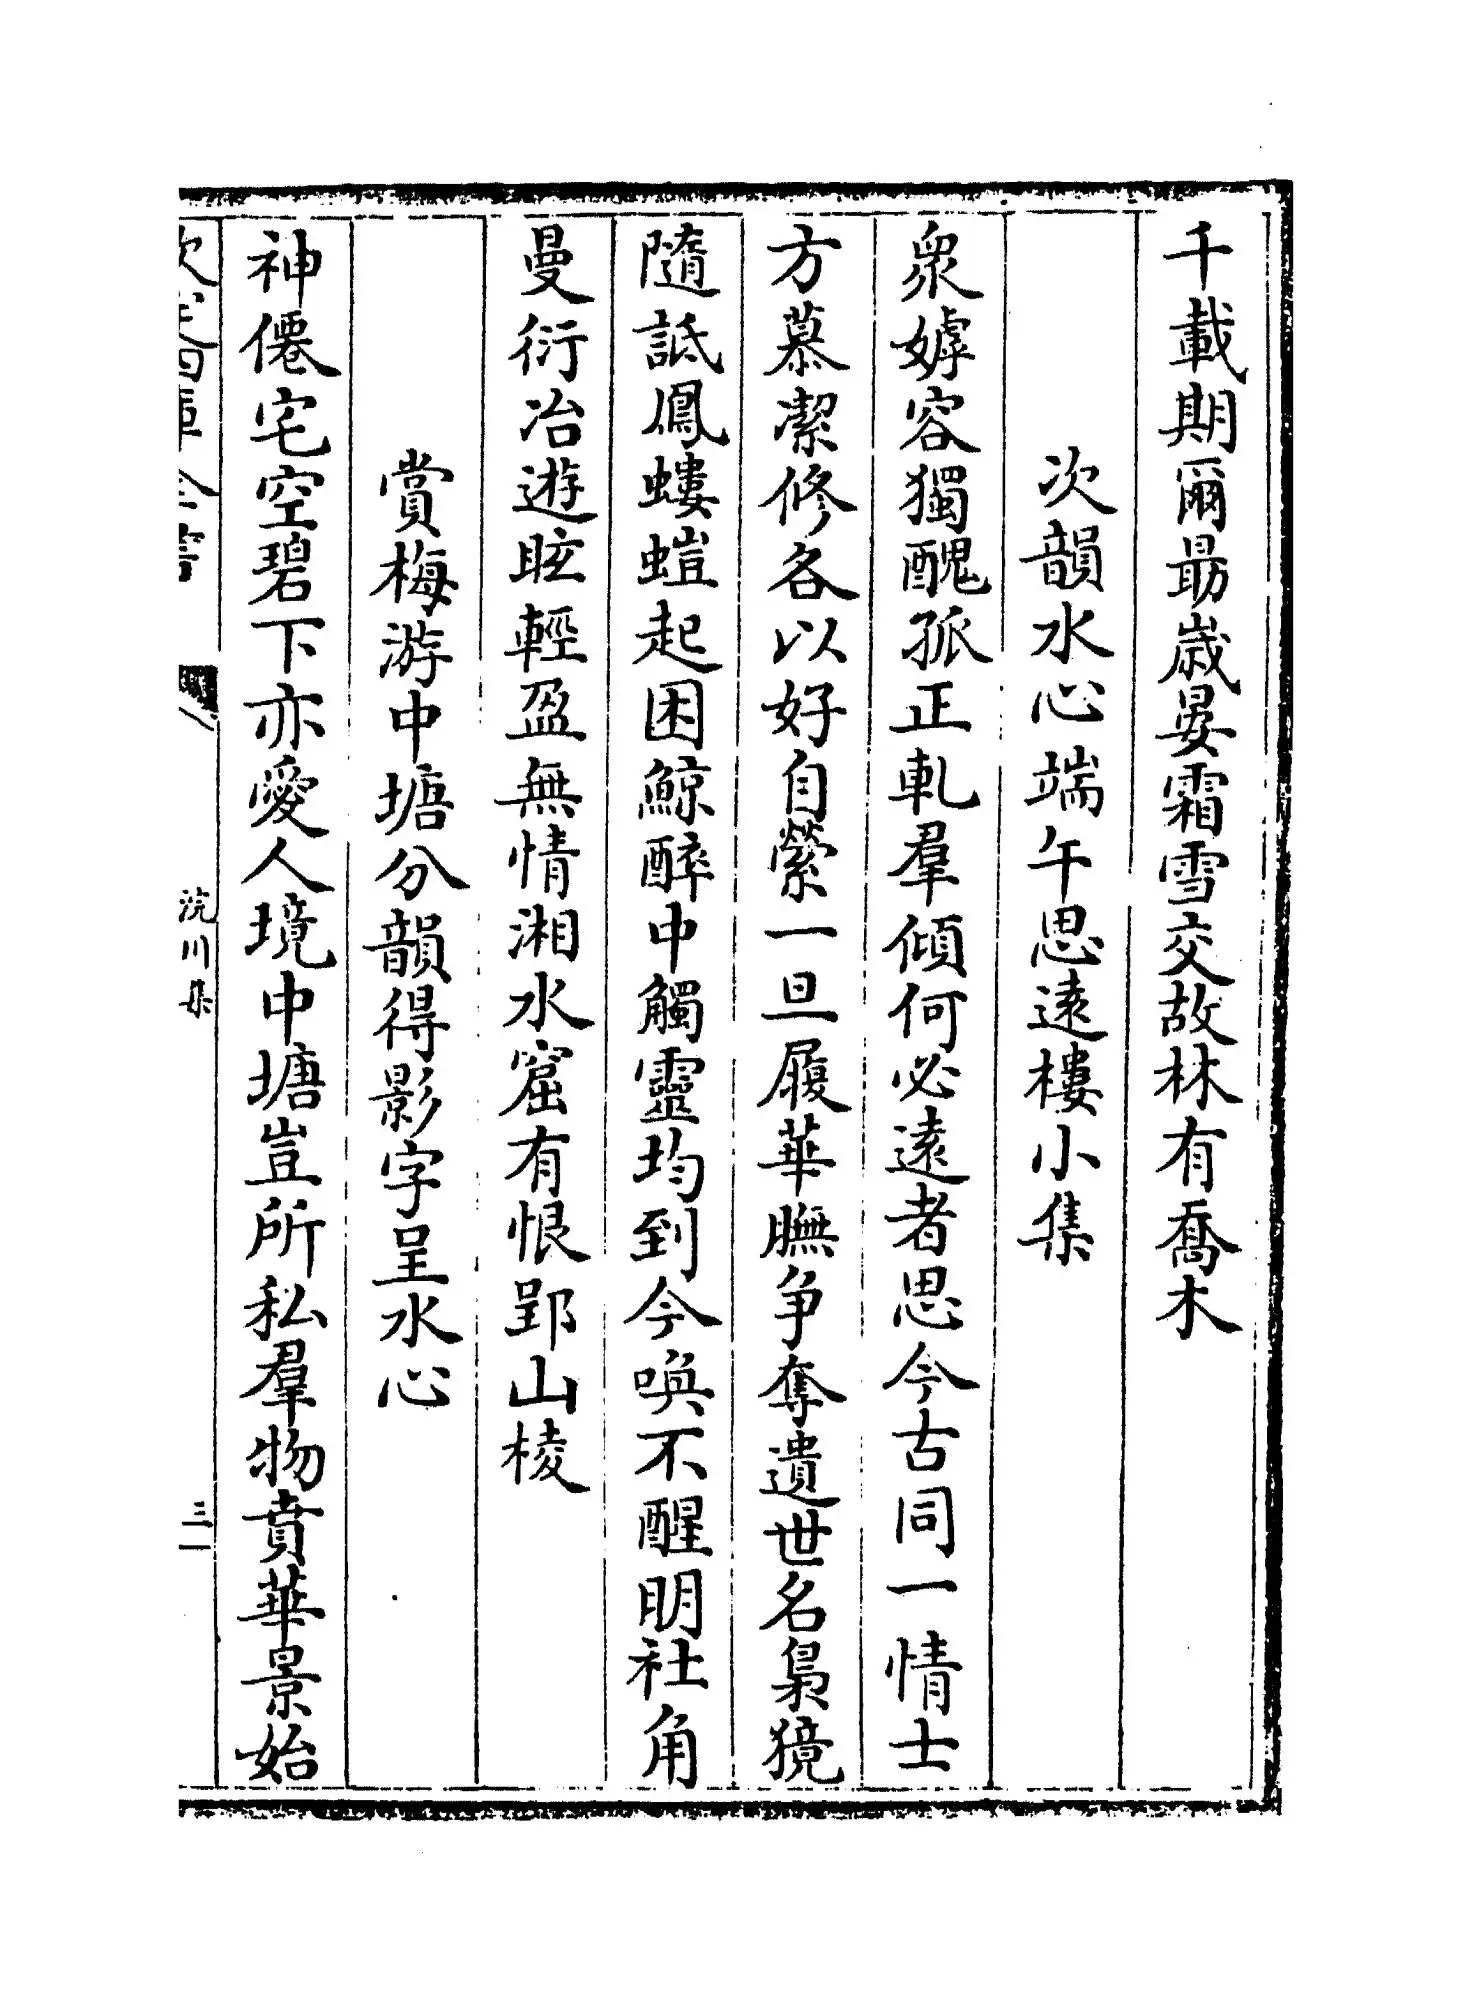 千載期爾勗歳晏霜雪交故林有喬木
次韻水心端午思遠樓小集
衆嫭容獨醜孤正軋羣傾何必遠者思今古同一情士
方慕潔修各以好自縈一旦履華膴争奪遺世名梟獍
隨詆鳳螻螘起困鯨醉中觸靈均到今喚不醒明社角
曼衍冶遊眩輕盈無情湘水窟有恨郢山棱
賞梅游中塘分韻得影字呈水心
神僊宅空碧下亦愛人境中塘豈所私羣物賁華景始
欽定四庫全書
浣川集
三